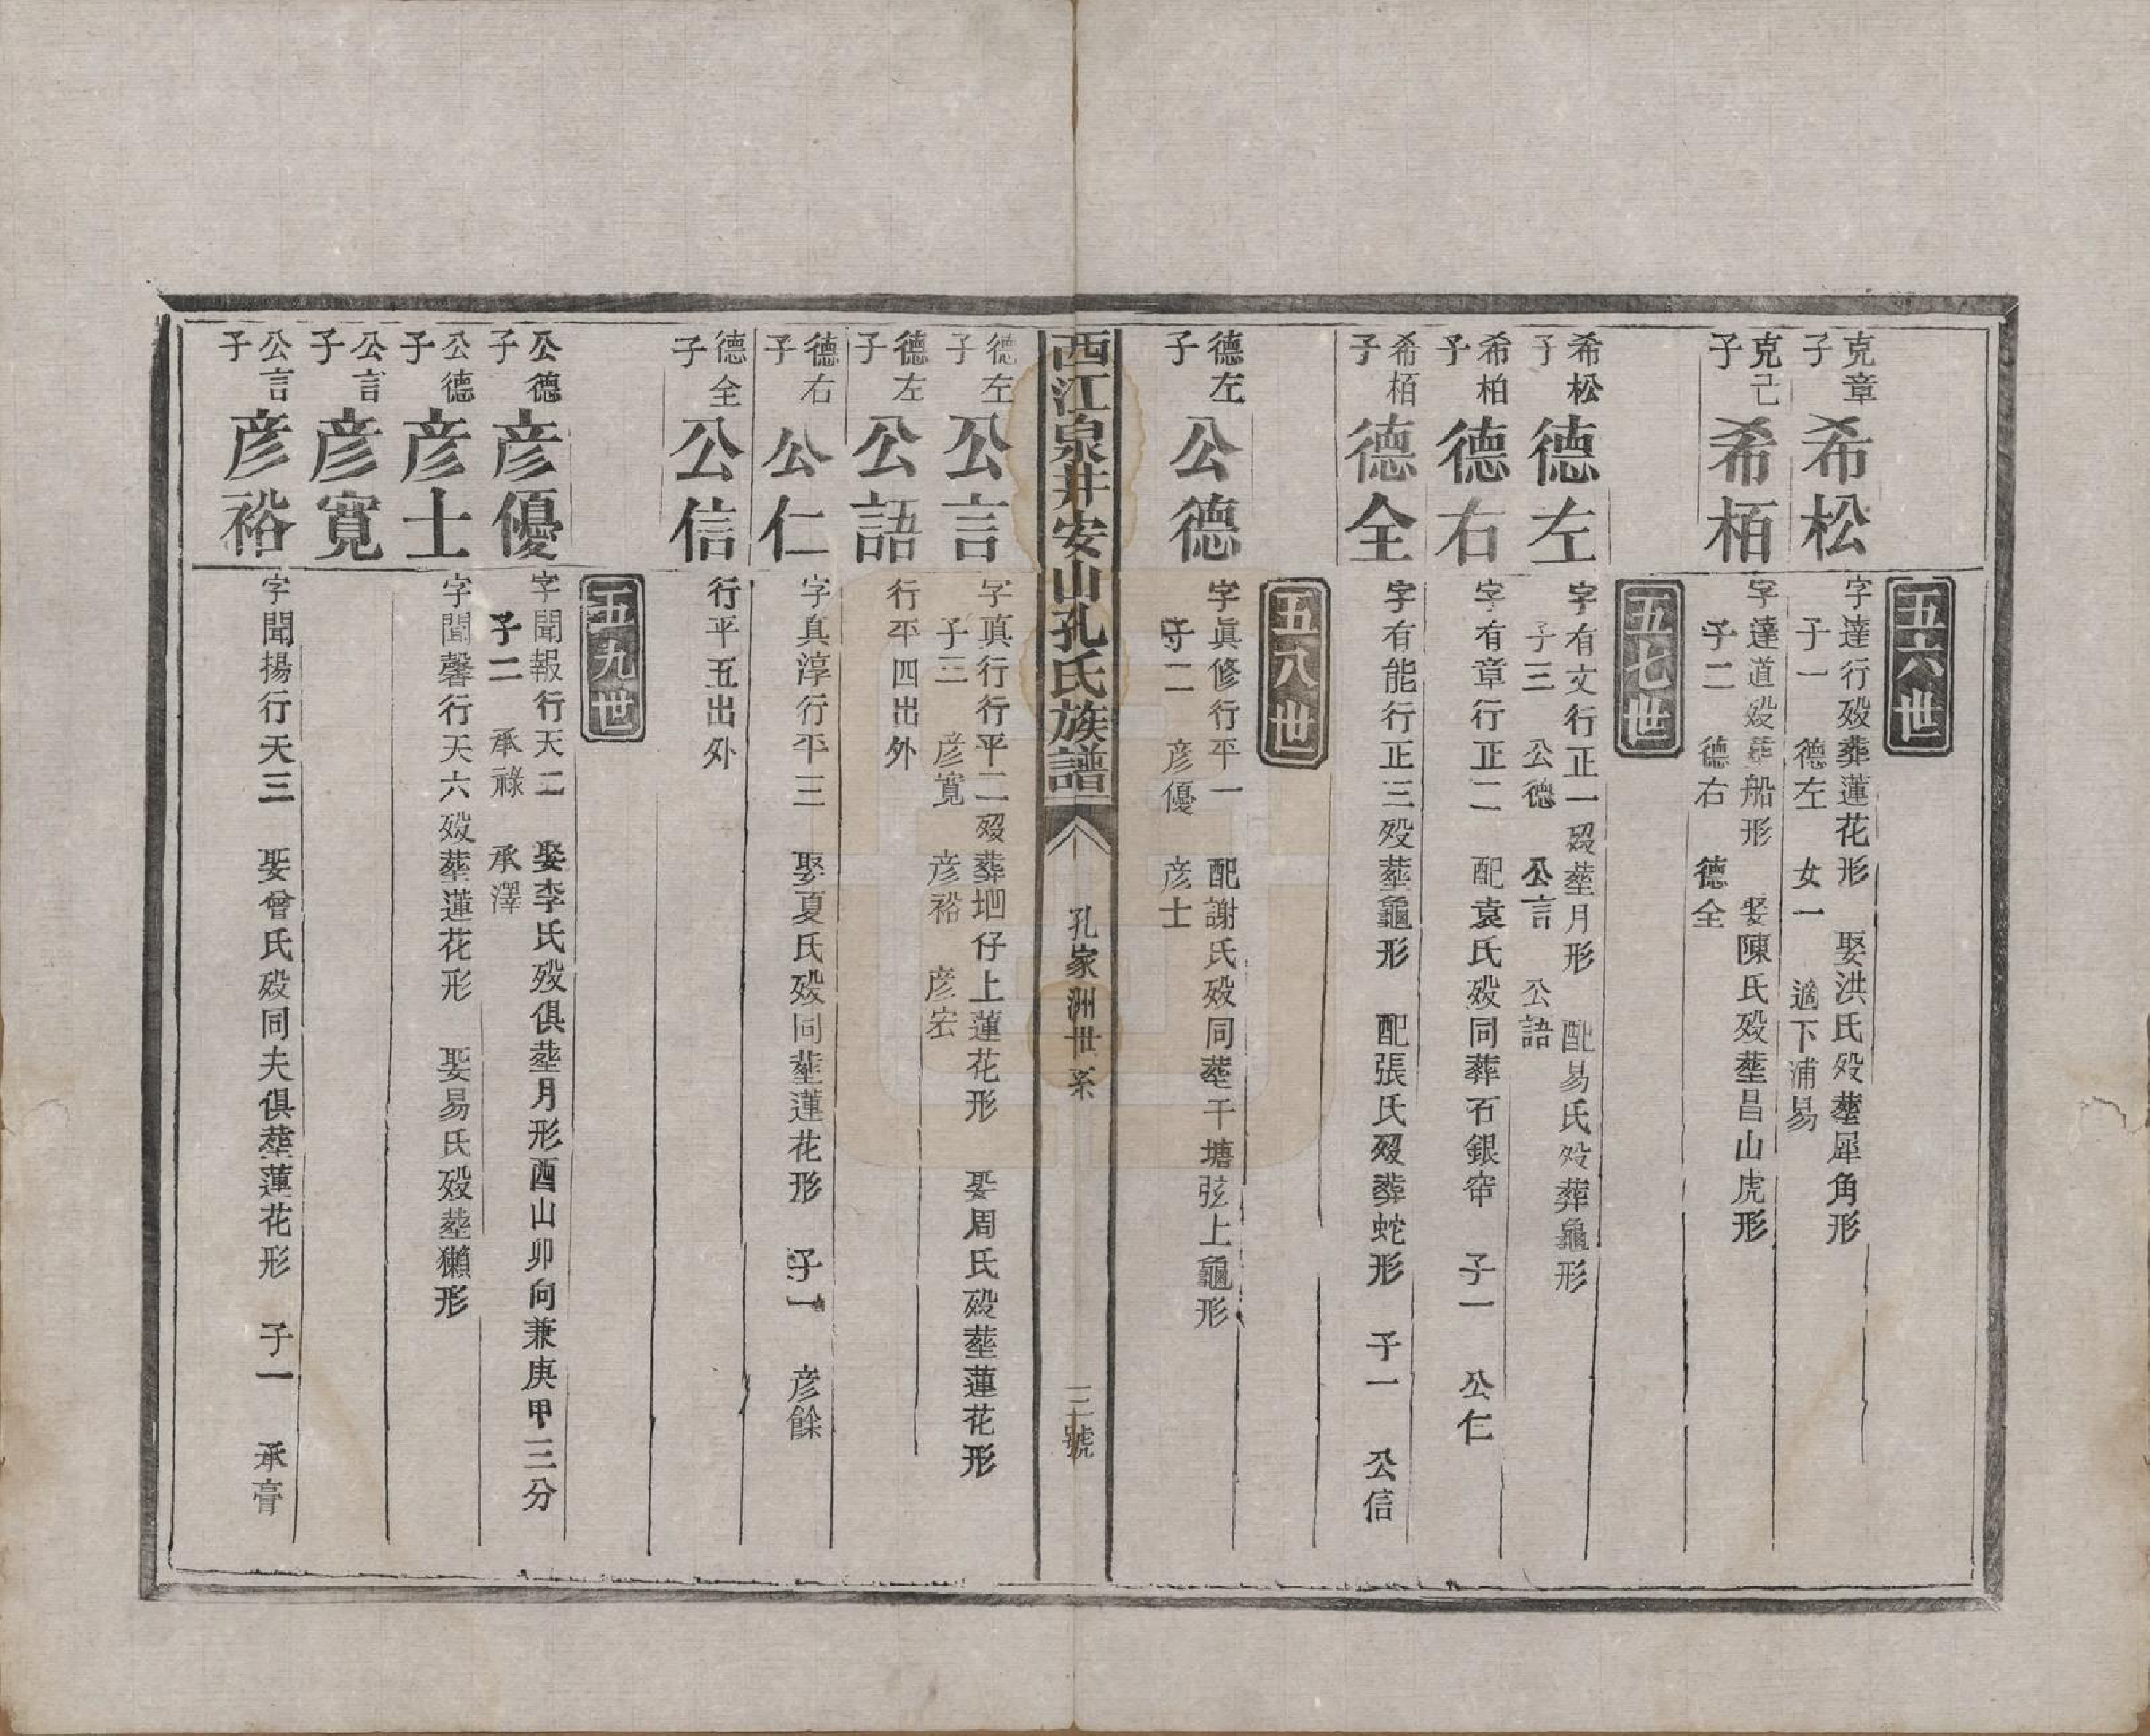 五六世
克章子
希松
字達行殁葬蓮花形　娶洪氏殁塟犀角形
子一　德左　女一　適下浦易
克己子
希栢
字達道殁塟船形　娶陳氏殁塟昌山虎形
子二　德右　德全
五七世
希松子
德左
字有文行正一殁塟月形　配易氏殁葬龜形
子三　公德　公言　公語
希柏子
德右
字有章行正二　配袁氏殁同葬石銀帘　子一　公仁
希栢子
德全
字有能行正三殁塟龜形　配張氏殁葬蛇形　子一　公信
五八世
德左子
公德
字眞修行平一　配謝氏殁同塟干塘弦上龜形
子二　彦優　彦士
西江泉井安山孔氏族譜
孔家洲世系
三號
德左子
公言
字眞行行平二殁葬地仔上蓮花形　娶周氏殁塟蓮花形
子三　彦寬　彦裕　彦宏
德左子
公語
行平四出外
德右子
公仁
字真淳行平三　娶夏氏殁同塟蓮花形　子一　彦餘
德全子
公信
行平五出外
五九世
公德子
彦優
字聞報行天二　娶李氏殁俱塟月形酉山卯向兼庚甲三分
子二　承祿　承澤
公德子
彦士
字聞馨行天六殁塟蓮花形　娶易氏殁塟獺形
公言子
彦寬
公言子
彦裕
字聞揚行天三　娶曾氏殁同夫俱塟蓮花形　子一　承膏